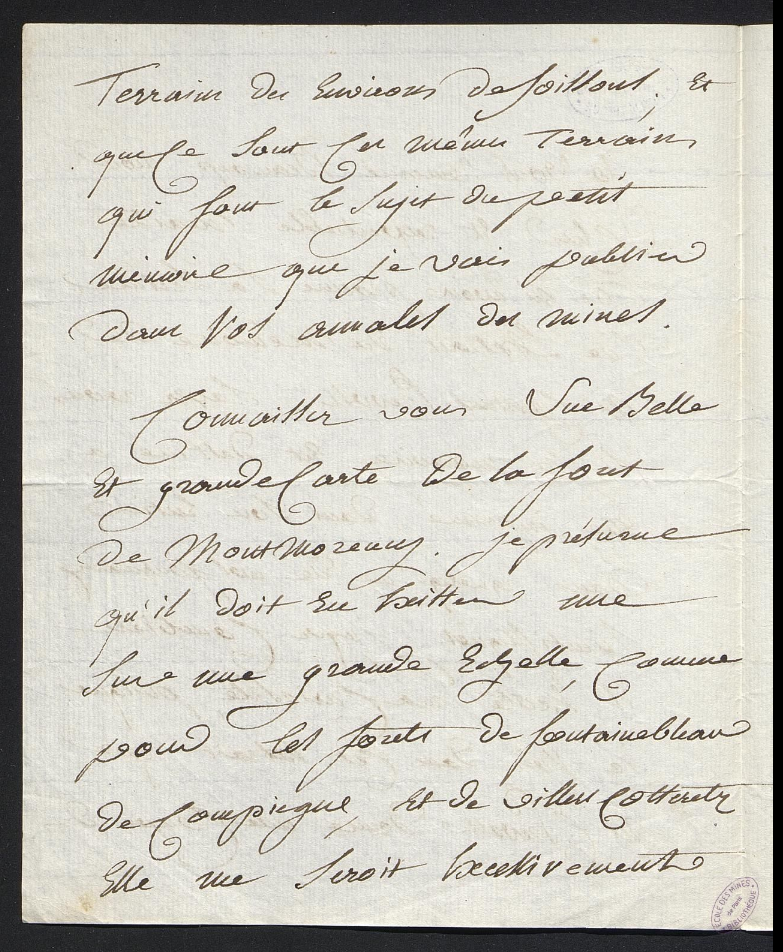 Terrains des Environs de Soissons. Et
que ce sont ces mêmes Terrains
qui font le sujet du petit
mémoire que je vais publier
dans Vos annales des mines.
Connaissez vous Une Belle
Et grande Carte De la foret
de MontMorency. je présume
qu'il doit En Exister une
Sur une grande Echelle, Comme
pour les forets de fontainebleau
de Compiegne, et de villers Cotteretz
Elle me Seroit Excessivement
ECOLE DES MINES
de Paris
BIBLIOTHEQUE